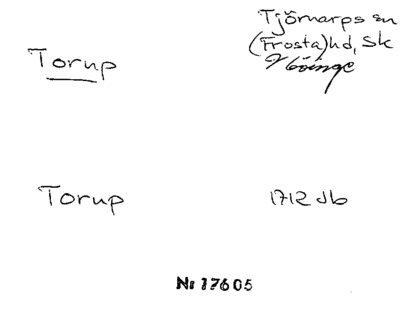 Torup
Tjörnarps sn
(Frosta)hd, Sk
Torup
1712 Jb
Nr 17605